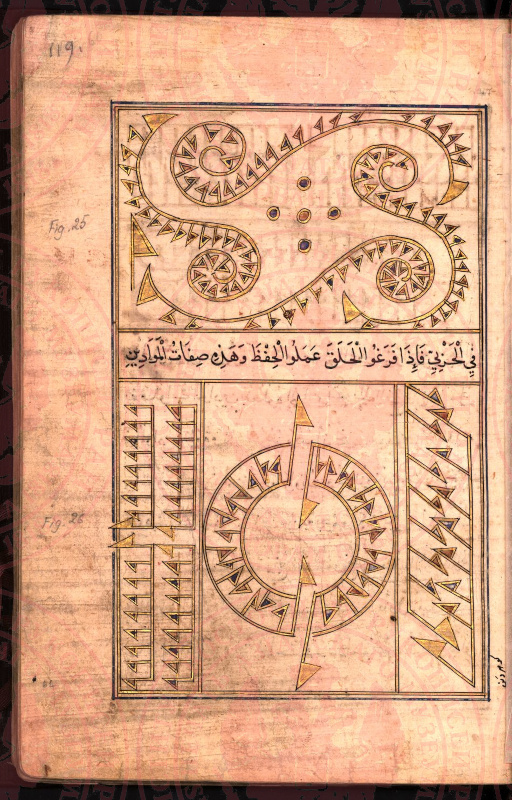 119.
Fig. 25
في الْحَرْبِيّ فَإِذَا فَرَغُو الْحَلَقَ عَمَلُو الْحِفْظَ وَهَذِهِ صِفَاتُ الْمَوَادِينِ
Fig. 26